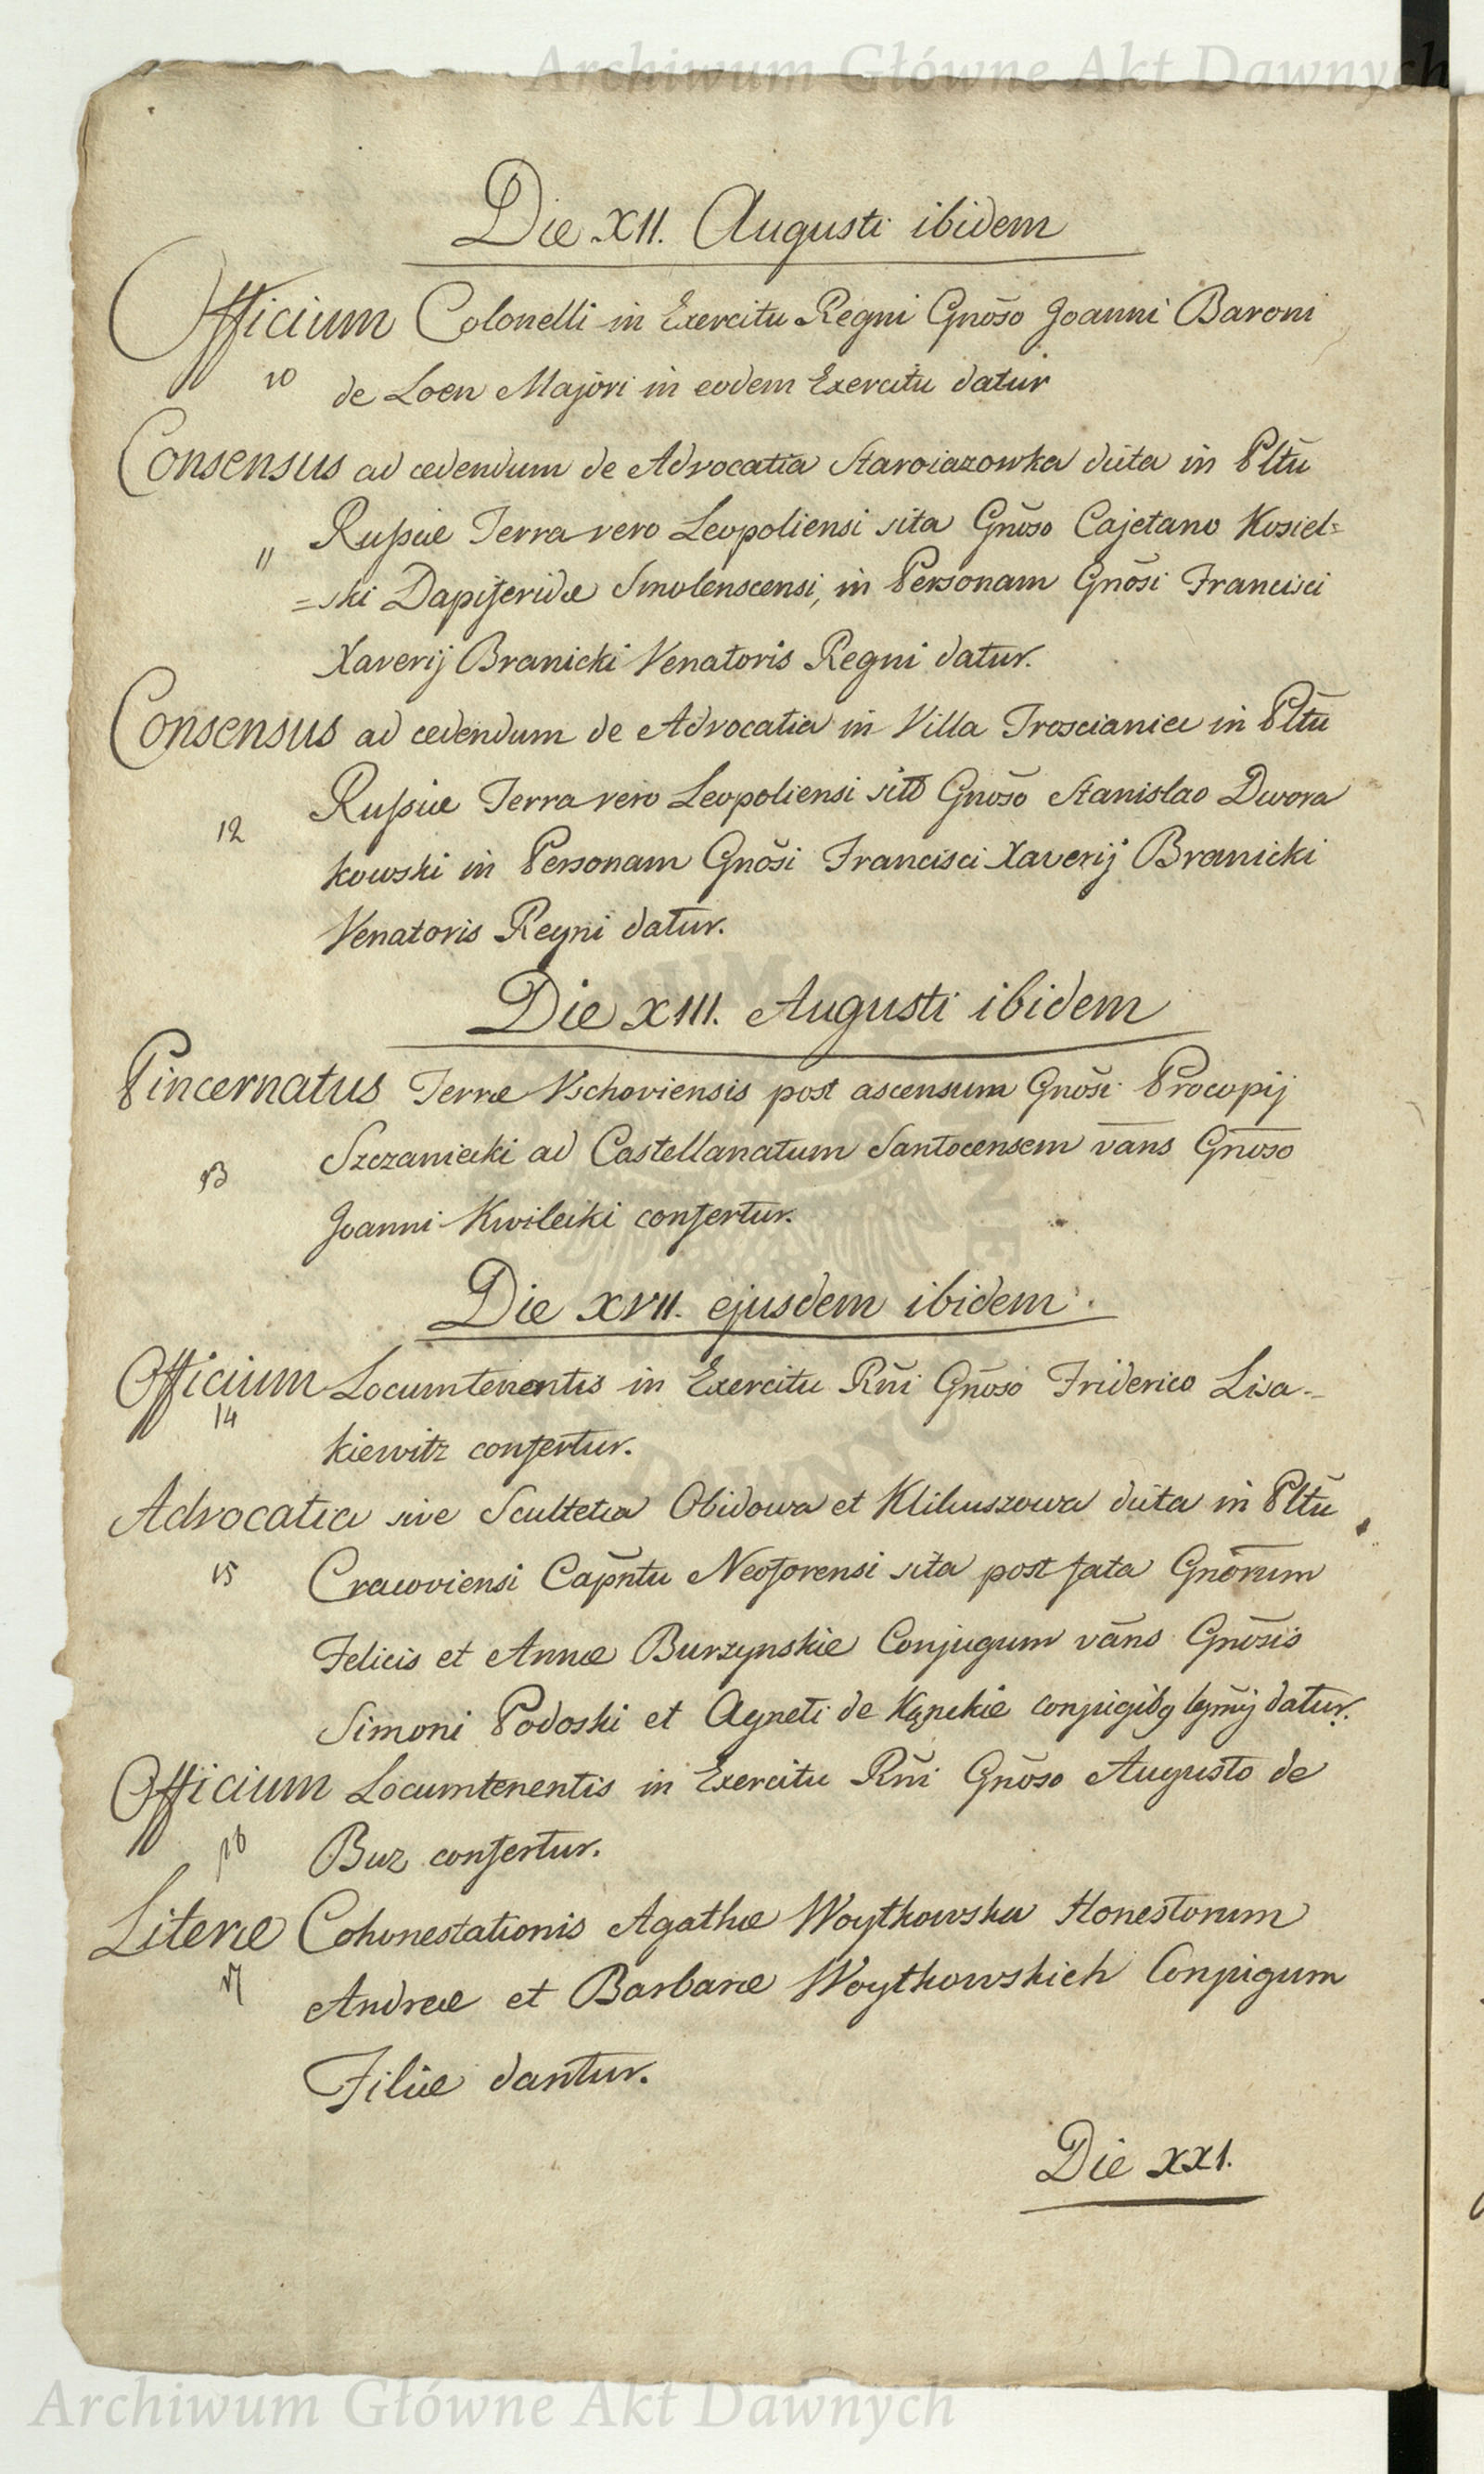 Archiwum Główne Akt Dawnych
Die XII. Augusti ibidem
Officium Colonelli in Exercitu Regni Gnoso Joanni Baroni
10 de Loen Majori in eodem Exercitu datur
Consensus ad cedendum de Advocatia Staroiazowka dicta in Pltu
11 Russiae Terra vero Leopoliensi sita Gnoso Cajetano Kosiel=
=ski Dapiferidae Smolenscensi, in Personam Gnosi Francisci
Xaverij Branicki Venatoris Regni datur.
Consensus ad cedendum de Advocatia in Villa Troscianiec in Pltu
12 Russiae Terra vero Leopoliensi sito Gnoso Stanislao Dwora
kowski in Personam Gnosi Francisci Xaverij Branicki
Venatoris Regni datur.
Die XIII. Augusti ibidem
Pincernatus Terrae Vschoviensis post ascensum Gnosi Procopij
13 Szczaniecki ad Castellanatum Santocensem vans Gnoso
Joanni Kwilecki confertur.
Die XVII. ejusdem ibidem.
Officium Locumtenentis in Exercitu Rni Gnoso Friderico Lisa-
14 kiewitz confertur.
Advocatia sive Scultetia Obidowa et Klikuszowa dicta in Pltu
15 Cracoviensi Capntu Neoforensi sita post fata Gnorum
Felicis et Annae Burzynskie Conjugum vans Gnosis
Simoni Podoski et Agneti de conjugibq datur.
Officium Locumtenentis in Exercitu Rni Gnoso Augusto de
16 Buz confertur.
Literae Cohonestationis Agathae Woytkowska Honestorum
17 Andreae et Barbarae Woytkowskich Conjugum
Filiae dantur.
Die XXI.
Archiwum Główne Akt Dawnych